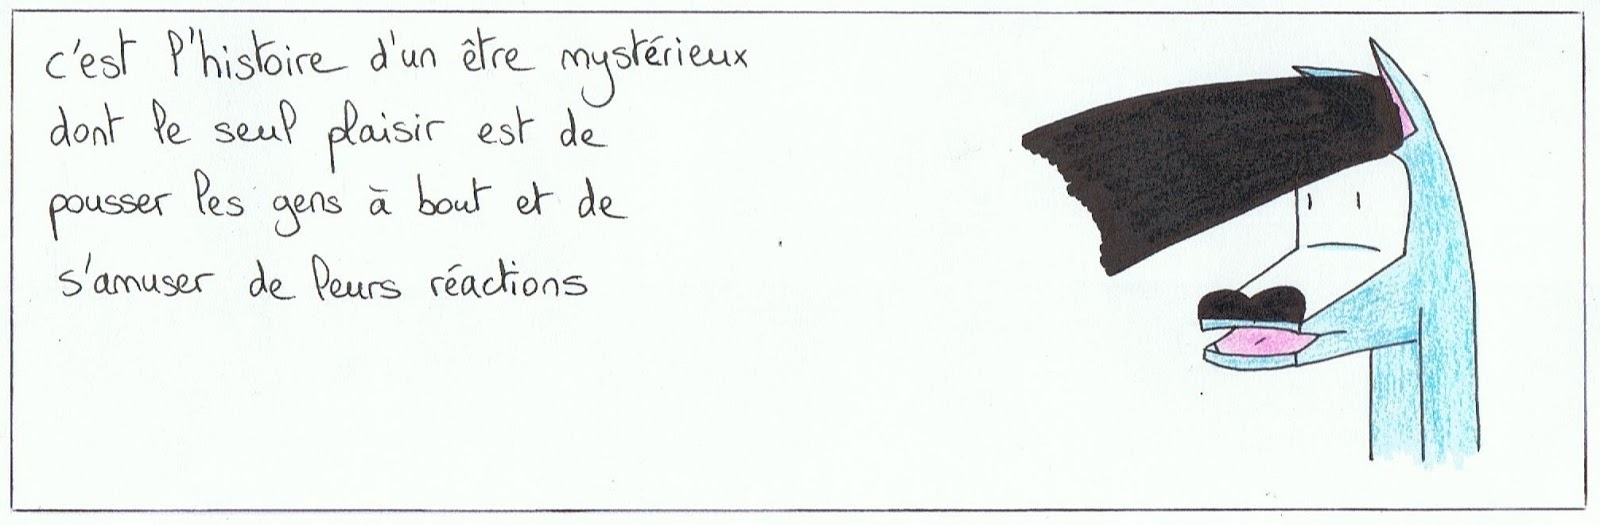 c'est l'histoire d'un être mystérieux
dont le seul plaisir est de
pousser les gens à bout et de
s'amuser de leurs réactions